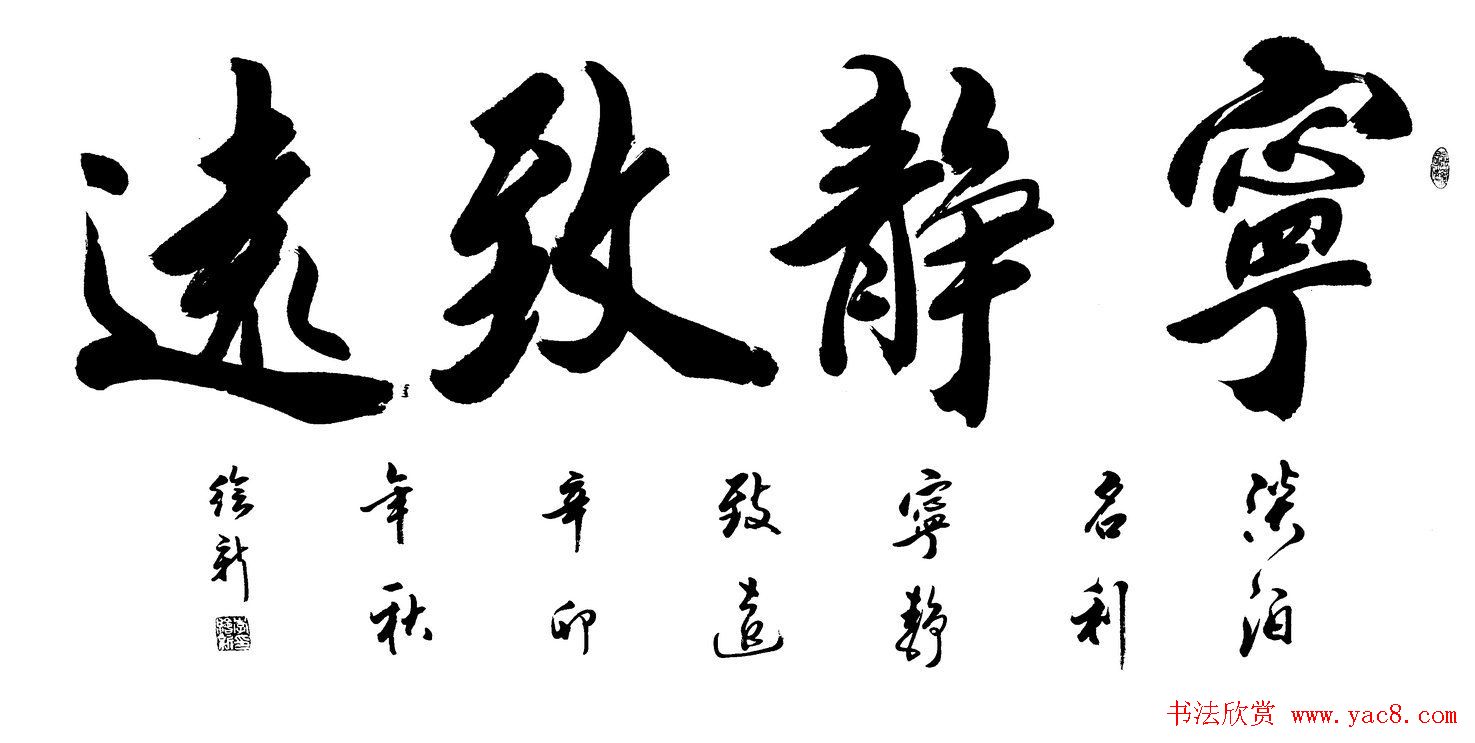 寧靜致遠
淡泊
名利
寧靜
致遠
辛卯
年秋
绘新
书法欣赏 www.yac8.com